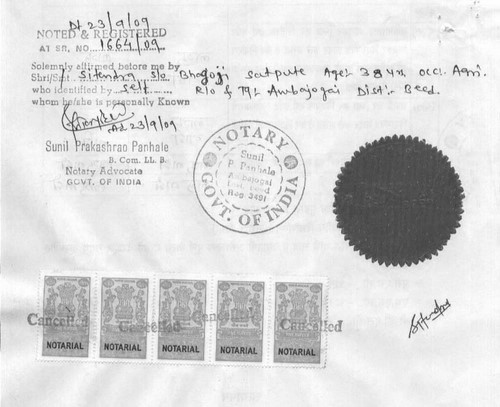 Dt 23/9/09
NOTED & REGISTERED
AT SR. NO. 1664/09
Solemnly affirmed before me by
Shri/Smt. Jitendra s/o Bhagoji Satpute Age: 38 yrs, occ. Agri.
who identified by self R/o & Tq: Ambajogai Dist: Beed.
whom he/she is personally Known
Dt 23/9/09
Sunil Prakashrao Panhale
B. Com. LL. B.
Notary Advocate
GOVT. OF INDIA
NOTARY
Sunil
P. Panhale
Ambajogai
Dist. Beed
Reg 3491
GOVT. OF INDIA
Cancelled Cancelled Cancelled Cancelled
NOTARIAL NOTARIAL NOTARIAL NOTARIAL NOTARIAL